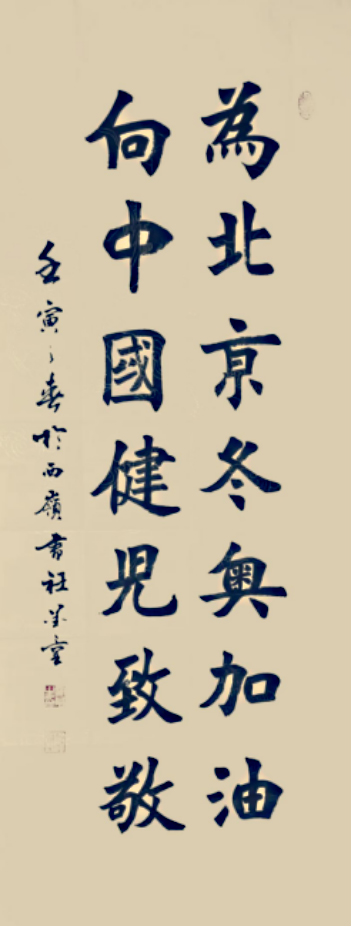 為北京冬奥加油
向中國健児致敬
壬寅之春於西嶺書